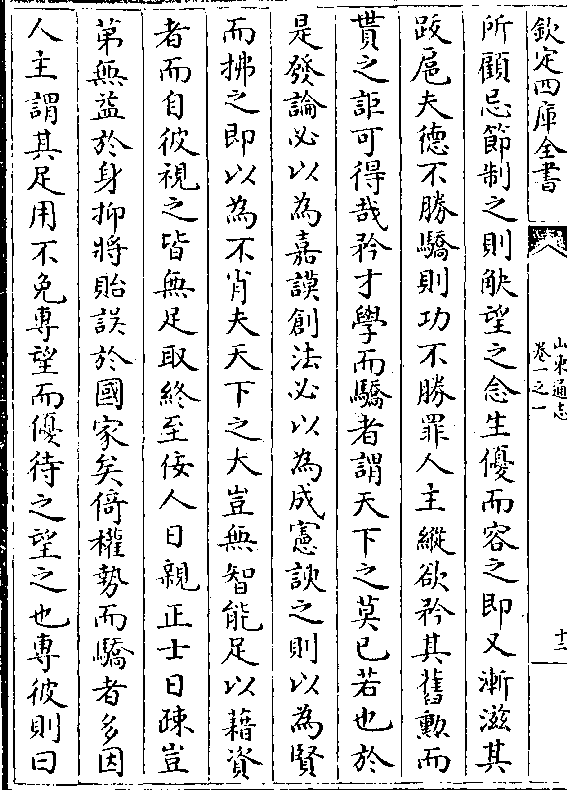 欽定四庫全書
山東通志
卷一之一
十三
所顧忌節制之則觖望之念生優而容之即又漸滋其
跋扈夫德不勝驕則功不勝罪人主縱欲矜其舊勳而
貰之詎可得哉矜才學而驕者謂天下之莫已若也於
是發論必以為嘉謨創法必以為成憲諛之則以為賢
而拂之即以為不肖夫天下之大豈無智能足以藉資
者而自彼視之皆無足取終至佞人日親正士日疎豈
第無益於身抑將貽誤於國家矣倚權勢而驕者多因
人主謂其足用不免專望而優待之望之也專彼則曰